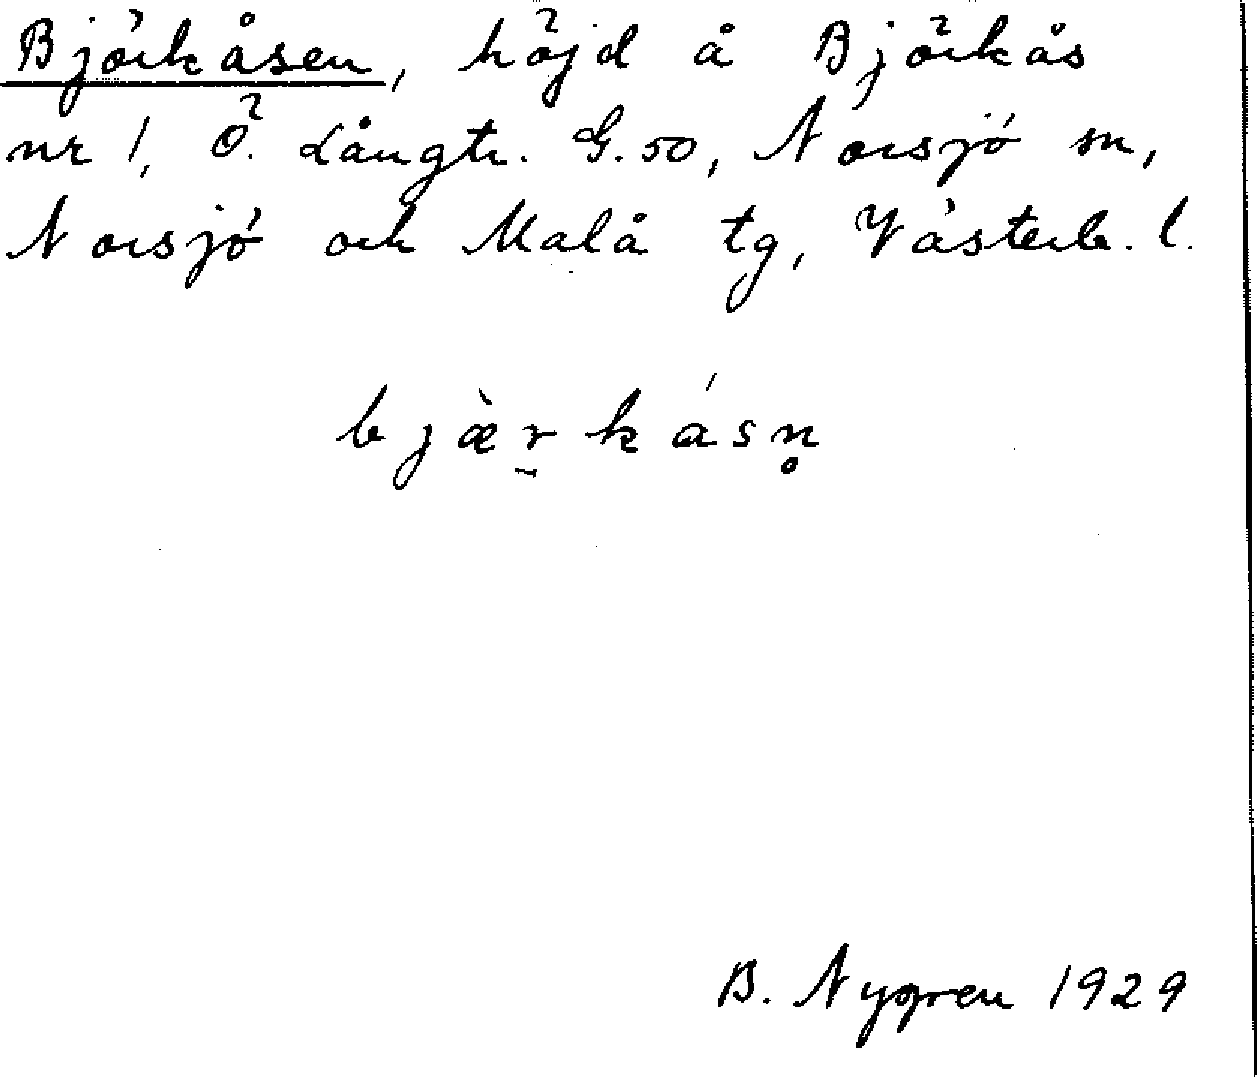 Björkåsen, höjd å Björkås
nr 1, Ö. Långtr. G. 50, Norsjö sn,
Norsjö och Malå tg, Västerb. l.
bjæ̀r̰kásn̥
B. Nygren 1929